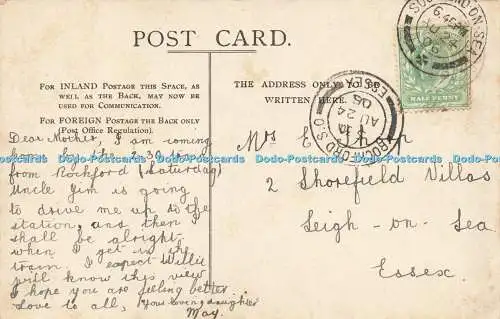 POST CARD.
FOR INLAND POSTAGE THIS SPACE, AS
WELL AS THE BACK, MAY NOW BE
USED FOR COMMUNICATION.
FOR FOREIGN POSTAGE THE BACK ONLY
(Post Office Regulation).
THE ADDRESS ONLY TO BE
WRITTEN HERE.
SOUTHEND-ON-SEA
HALF PENNY
ESSEX
AU 24
05
Dear Mother, I am coming
home by the 30
from Rochford (Saturday)
Uncle Jim is going
to drive me up to the
station, and then I
shall be alright
when I get in the
train. I expect Willie
will know this view
I hope you are feeling better.
Love to all, Your loving daughter
May.
Mrs E
2 Shorefield Villas
Leigh-on-Sea
Essex.
Dodo-Postcards Dodo-Postcards Dodo-Postcards Dodo-Postcards Dodo-Postcards